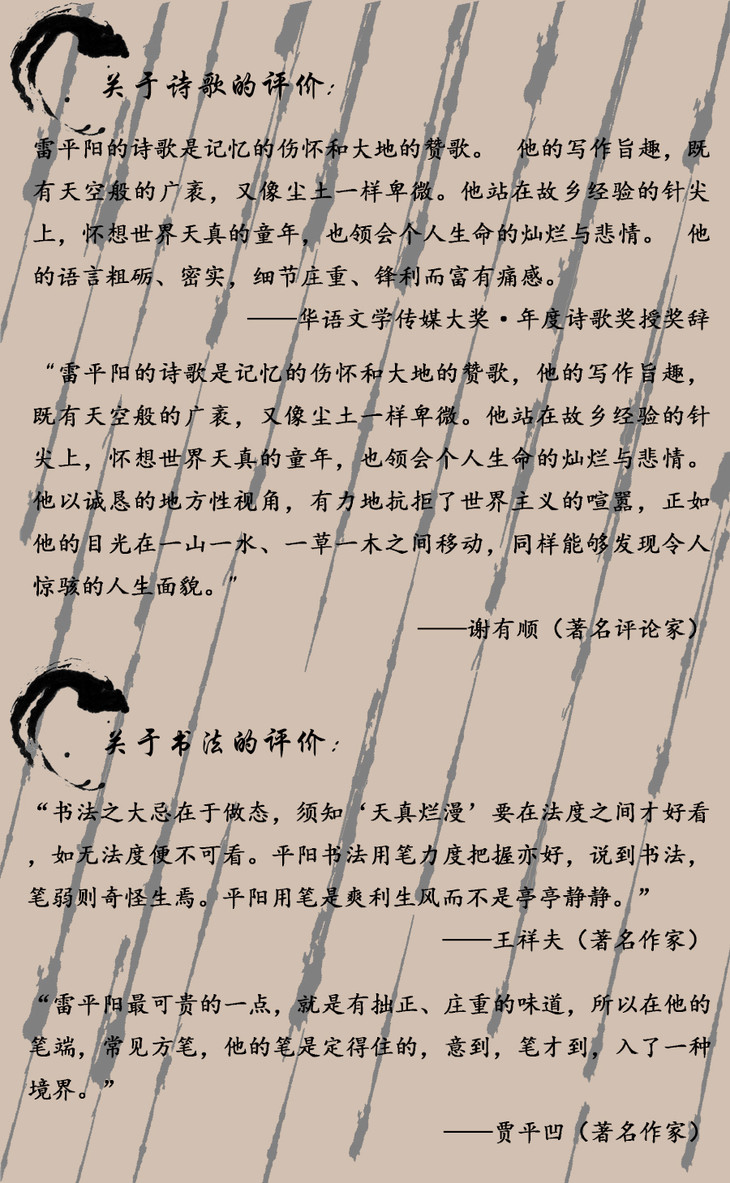 关于诗歌的评价:
雷平阳的诗歌是记忆的伤怀和大地的赞歌。 他的写作旨趣，既
有天空般的广袤，又像尘土一样卑微。他站在故乡经验的针尖
上，怀想世界天真的童年，也领会个人生命的灿烂与悲情。 他
的语言粗砺、密实，细节庄重、锋利而富有痛感。
——华语文学传媒大奖·年度诗歌奖授奖辞
“雷平阳的诗歌是记忆的伤怀和大地的赞歌，他的写作旨趣，
既有天空般的广袤，又像尘土一样卑微。他站在故乡经验的针
尖上，怀想世界天真的童年，也领会个人生命的灿烂与悲情。
他以诚恳的地方性视角，有力地抗拒了世界主义的喧嚣，正如
他的目光在一山一水、一草一木之间移动，同样能够发现令人
惊骇的人生面貌。"
——谢有顺（著名评论家）
关于书法的评价:
“书法之大忌在于做态，须知‘天真烂漫’要在法度之间才好看
，如无法度便不可看。平阳书法用笔力度把握亦好，说到书法，
笔弱则奇怪生焉。平阳用笔是爽利生风而不是亭亭静静。”
——王祥夫（著名作家）
“雷平阳最可贵的一点，就是有拙正、庄重的味道，所以在他的
笔端，常见方笔，他的笔是定得住的，意到，笔才到，入了一种
境界。”
——贾平凹（著名作家）